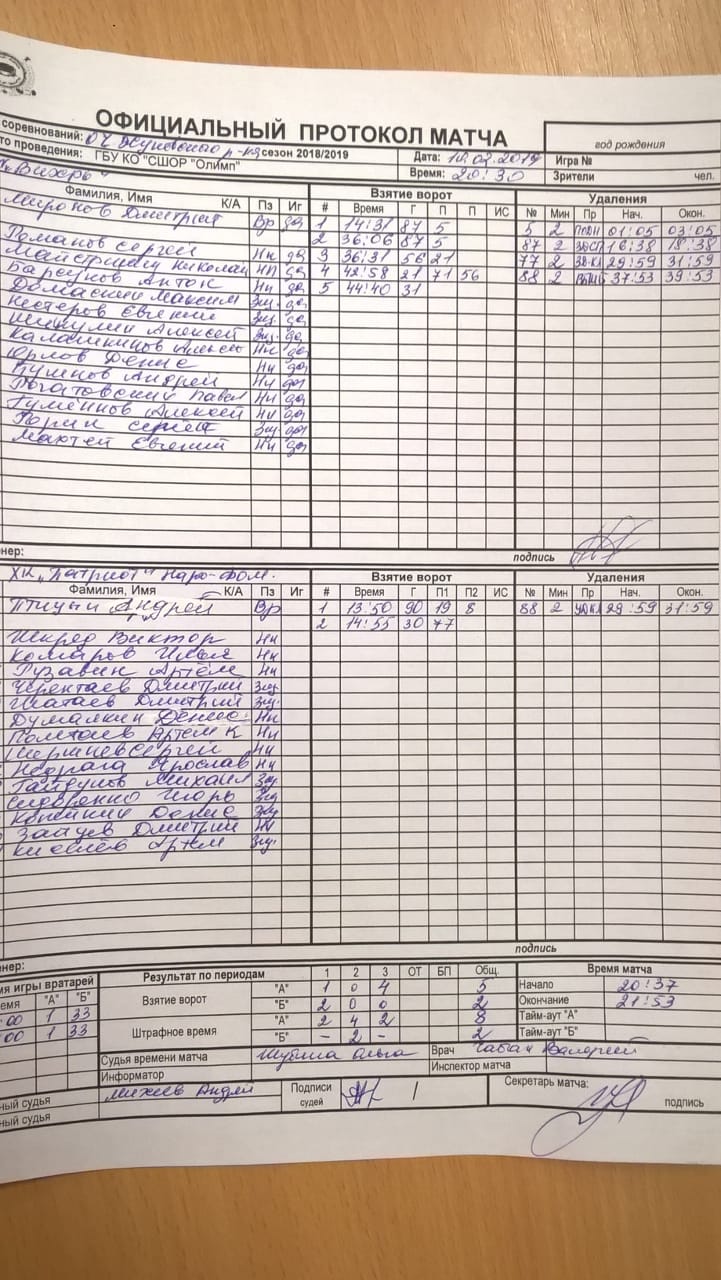 ОФИЦИАЛЬНЫЙ ПРОТОКОЛ МАТЧА
соревнований: ОЧ р-на сезон 2018/2019 год рождения
то проведения: ГБУ КО "СШОР "Олимп" Дата: 2019 Игра №
"Вихрь" Время: 20:30 Зрители чел.
Фамилия, Имя К/А Пз Иг Взятие ворот Удаления
# Время Г П П ИС № Мин Пр Нач. Окон.
Миронов Дмитрий Вр да 1 14:31 87 5 5 2 01:05 03:05
2 36:06 87 5 87 2 16:38 18:38
Романов Сергей Нп да 3 36:31 56 21 77 2 29:59 31:59
Николай Нп да 4 42:58 21 71 56 88 2 37:53 39:53
Антон Нп да 5 44:40 31
Максим Защ. да
Нестеров Евгений Защ. да
Алексей Защ. да
Калашников Алексей Нп да
Юрлов Денис Нп да
Андрей Нп да
Рогатовский Павел Нп да
Алексей Нп да
Сергей Защ да
Евгений Нп да
нер: подпись
ХК "Патриот" Наро-Фом.
Фамилия, Имя К/А Пз Иг Взятие ворот Удаления
# Время Г П1 П2 ИС № Мин Пр Нач. Окон.
Птицын Андрей Вр 1 13:50 90 19 8 88 2 29:59 31:59
2 14:55 30 77
Виктор Нп
Комаров Илья Нп
Рузавин Артём Нп
Дмитрий Защ
Шатаев Дмитрий Защ.
Думалкин Денис Нп
Артём К Нп
Сергей Нп
Недрага Ярослав Нп
Михаил Защ
Сидоренко Игорь Защ
Денис Защ
Зайцев Дмитрий Нп
Киселёв Артём Защ.
подпись
нер:
мя игры вратарей Результат по периодам 1 2 3 ОТ БП Общ. Время матча
емя "А" "Б" Взятие ворот "А" 1 0 4 5 Начало 20:37
:00 1 33 "Б" 2 0 0 2 Окончание 21:53
:00 1 33 Штрафное время "А" 2 4 2 8 Тайм-аут "А"
"Б" - 2 - 2 Тайм-аут "Б"
Судья времени матча Ольга Врач Чабан Валерий
Информатор Инспектор матча
ный судья Михеев Андрей Подписи судей Секретарь матча:
ный судья подпись